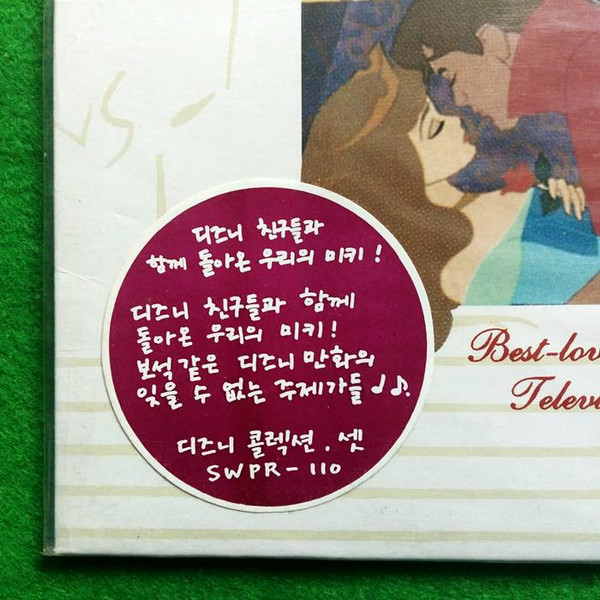 디즈니 친구들과
함께 돌아온 우리의 미키!
디즈니 친구들과 함께
돌아온 우리의 미키!
보석같은 디즈니만화의
잊을 수 없는 주제가들♩♪.
디즈니 콜렉션. 셋
SWPR-110
Best-lov
Televi